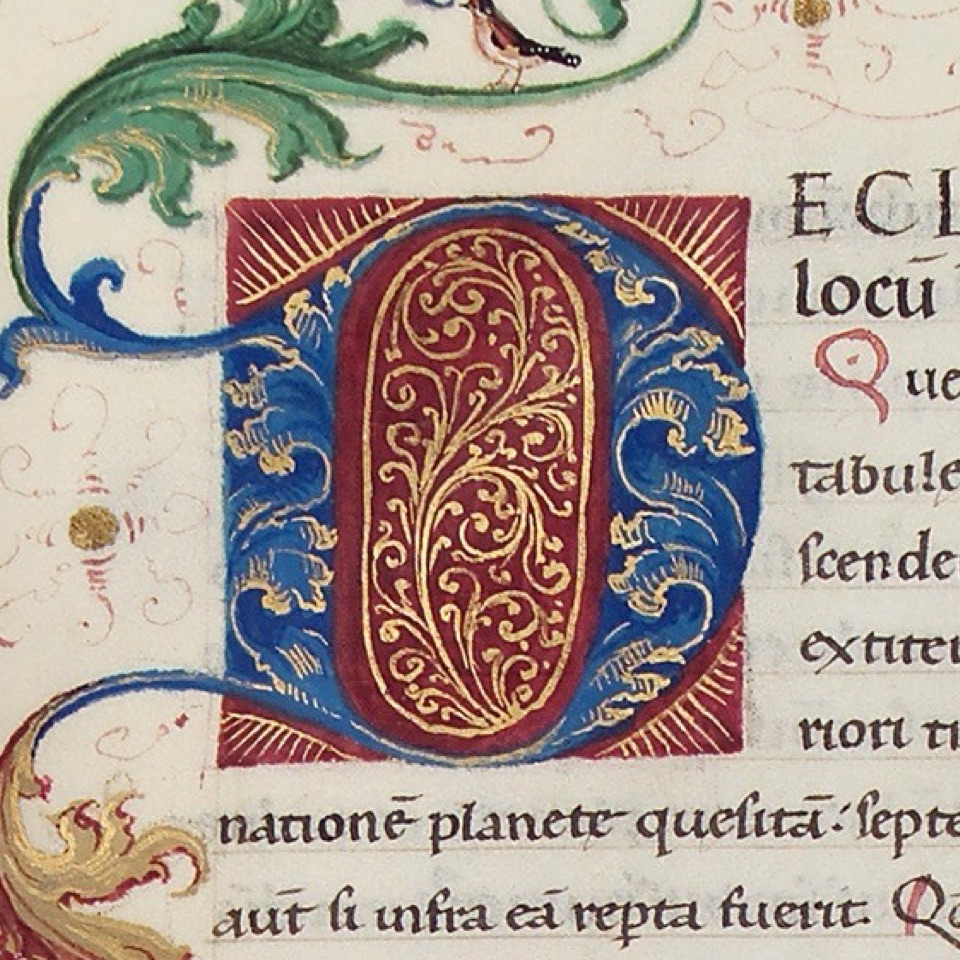 D ECL
locū
Que
tabule
ſcende
extiter
riori ti
natione̅ planete queſitā: ſepte
aut̄ ſi infra eā rep̱ta fuerit. Qd